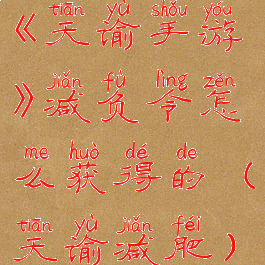 tiān yù shǒu yóu
《天谕手游
jiǎn fù lìng zěn
》减负令怎
me huò dé de
么获得的（
tiān yù jiǎn féi
天谕减肥）